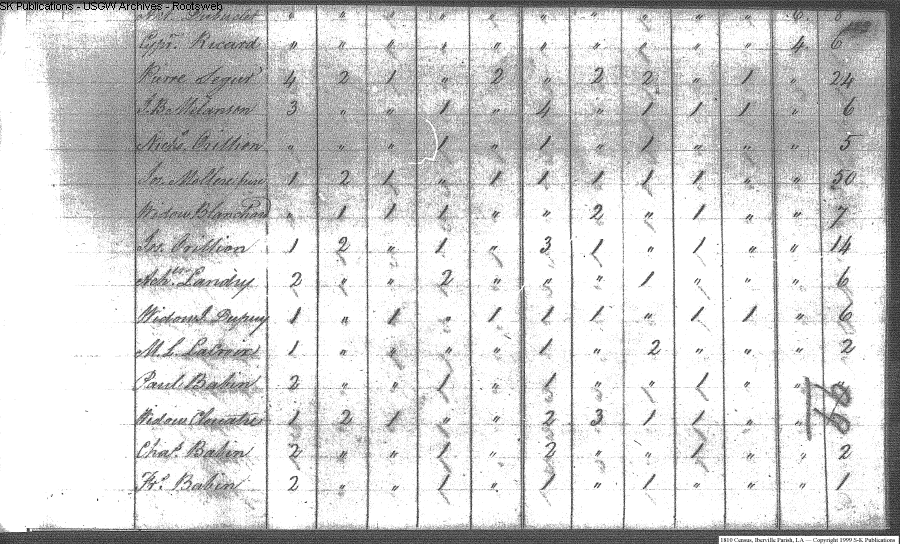 SK Publications - USGW Archives - Rootsweb
" " " " " " " " " " 6
Cypn. Ricard " " " " " " " " " " 4 6
Pierre Segur 4 2 1 " 2 " 2 2 " 1 " 24
J.B. Melanson 3 " " 1 " 4 " 1 1 1 " 6
Nichs. Orillion " " " 1 " 1 " 1 " " " 5
Jos. 1 2 1 " 1 1 1 1 1 " " 50
Widow Blanchard " 1 1 1 " " 2 " 1 " " 7
Jos. Orillion 1 2 " 1 " 3 1 " 1 " " 14
Landry 2 " " 2 " " " 1 " " " 6
Widow J. Dupuy 1 " 1 " 1 1 1 " 1 1 " 6
M. L. Lacroix 1 " " " " 1 " 2 " " " 2
Paul Babin 2 " " 1 " 1 " " 1 " " "
Widow Clouatre 1 2 1 " " 2 3 1 1 "
Chas. Babin 2 " " 1 " 2 " " 1 " " 2
Frs. Babin 2 " " 1 " 1 " 1 " " " 1
1810 Census, Iberville Parish, LA — Copyright 1999 S-K Publications